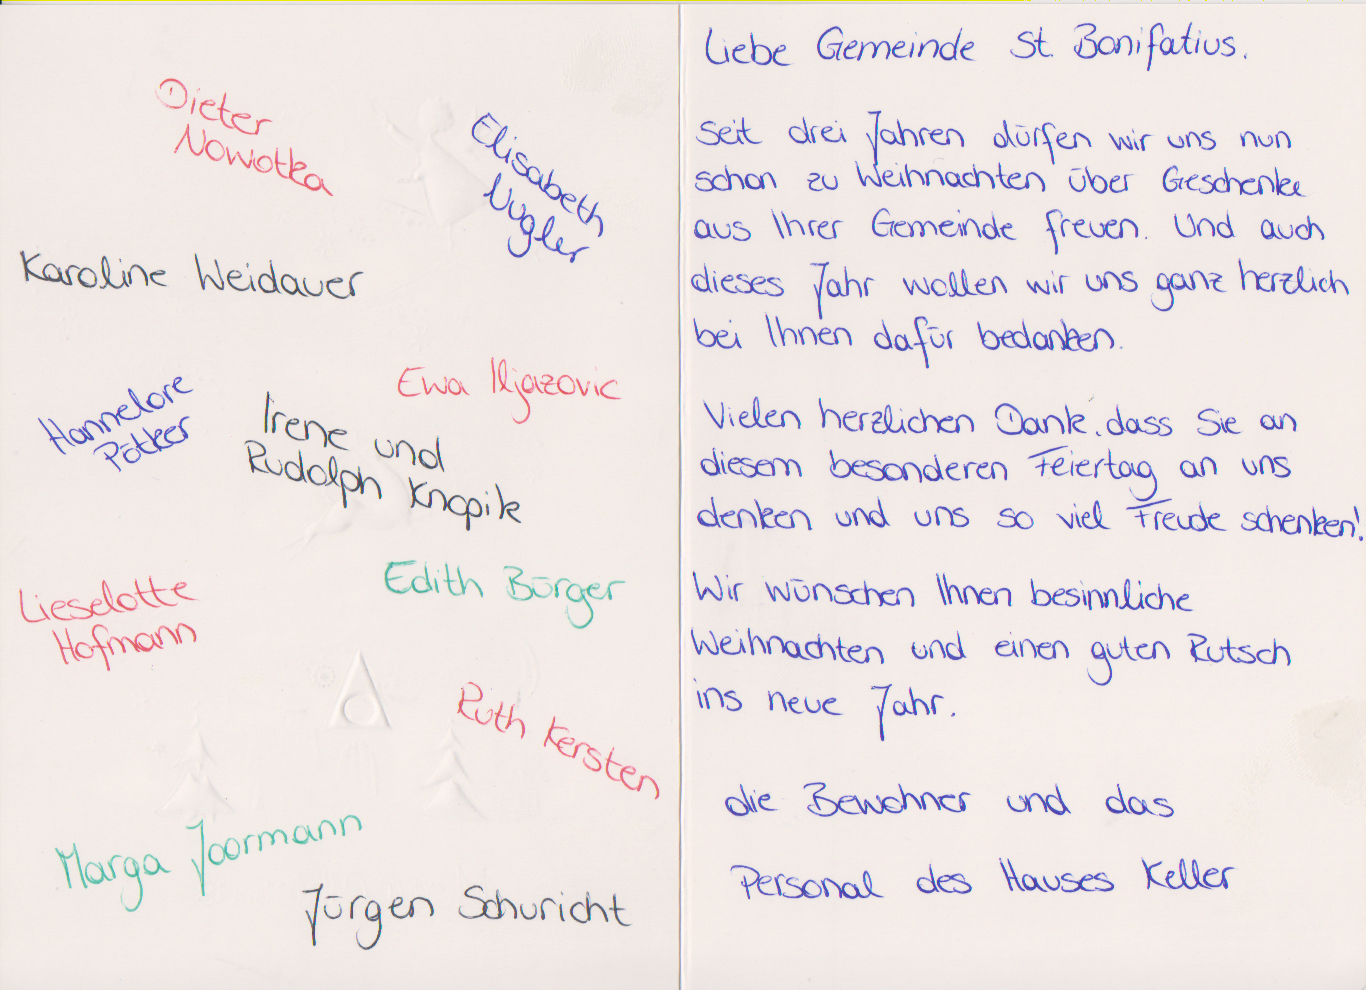 Dieter
Nowotka
Elisabeth
Nugler
Karoline Weidauer
Ewa Iljazovic
Hannelore
Pötker
Irene und
Rudolph Knopik
Lieselotte
Hofmann
Edith Bürger
Ruth Kersten
Marga Joormann
Jürgen Schuricht
Liebe Gemeinde St. Bonifatius.
Seit drei Jahren dürfen wir uns nun
schon zu Weihnachten über Geschenke
aus Ihrer Gemeinde freuen. Und auch
dieses Jahr wollen wir uns ganz herzlich
bei Ihnen dafür bedanken.
Vielen herzlichen Dank, dass Sie an
diesem besonderen Feiertag an uns
denken und uns so viel Freude schenken!
Wir wünschen Ihnen besinnliche
Weihnachten und einen guten Rutsch
ins neue Jahr.
die Bewohner und das
Personal des Hauses Keller